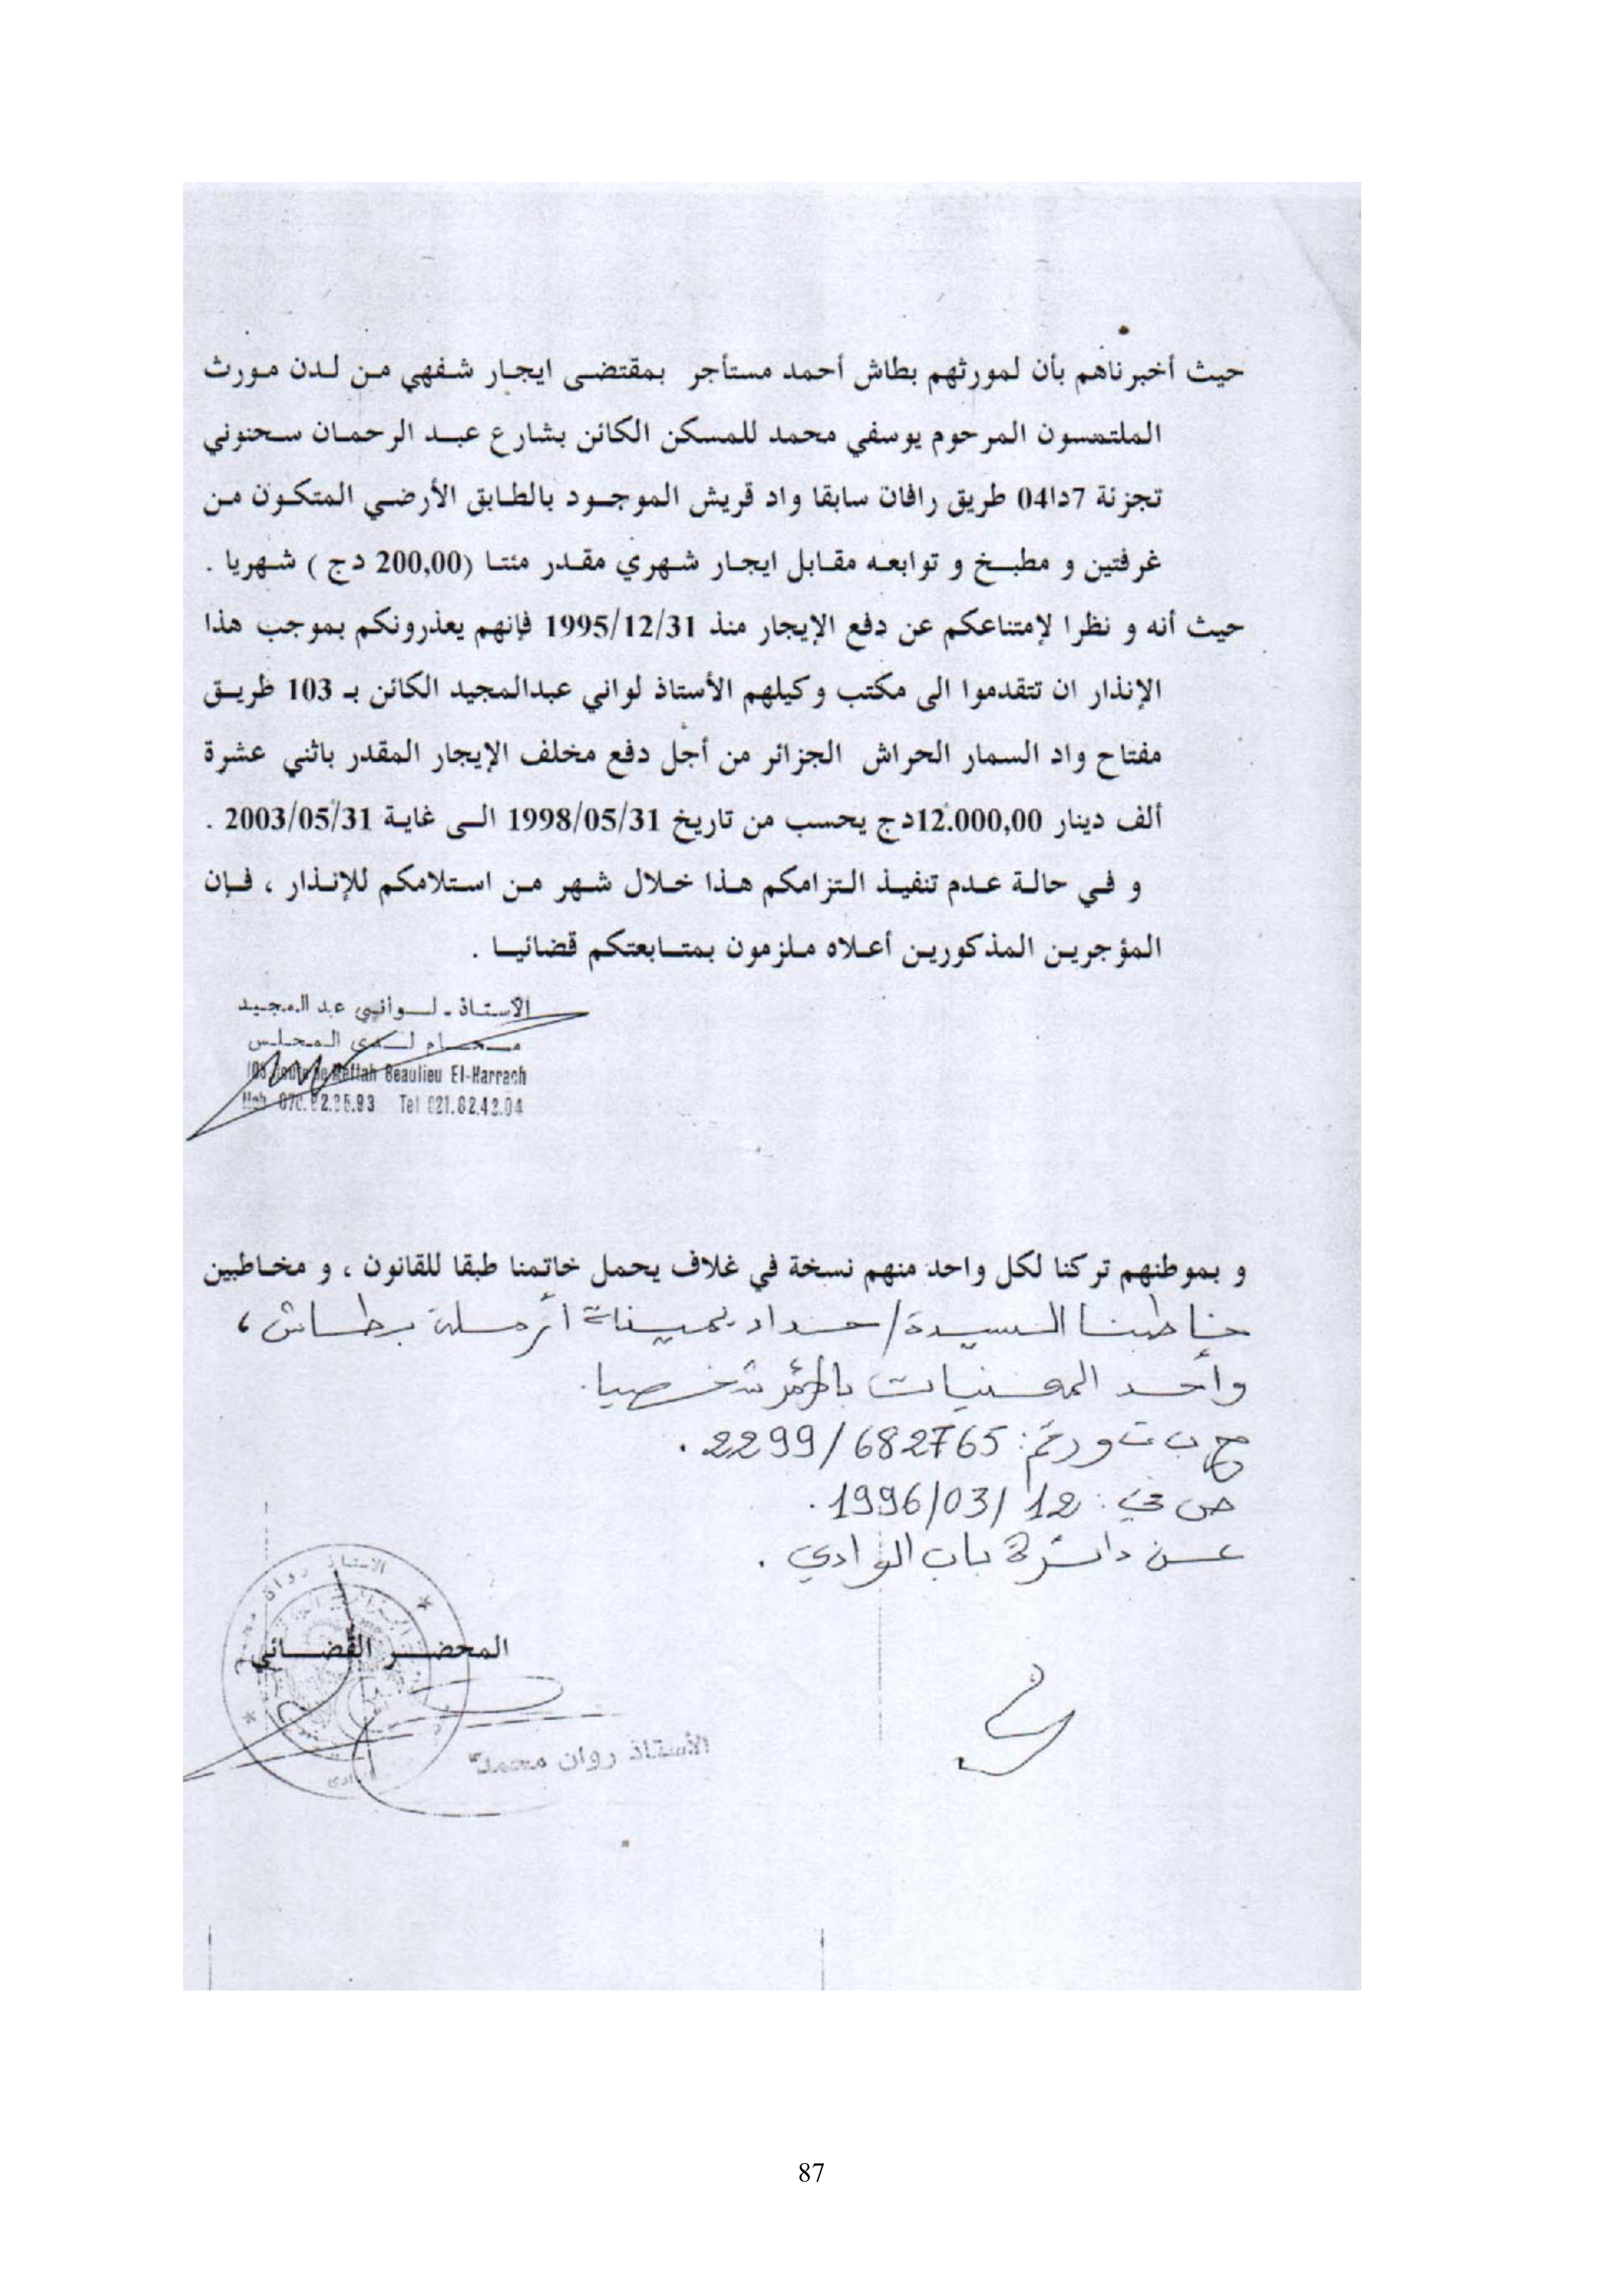 حيث أخبرناهم بأن لمورثهم بطاش أحمد مستأجر بمقتضى ايجار شفهي من لدن مورث
الملتمسون المرحوم يوسفي محمد للمسكن الكائن بشارع عبد الرحمان سحنوني
تجزئة 7دا04 طريق رافان سابقا واد قريش الموجود بالطابق الأرضي المتكون من
غرفتين و مطبخ و توابعه مقابل ايجار شهري مقدر مئتا (200,00 دج ) شهريا .
حيث أنه و نظرا لإمتناعكم عن دفع الإيجار منذ 1995/12/31 فإنهم يعذرونكم بموجب هذا
الإنذار ان تتقدموا الى مكتب وكيلهم الأستاذ لواني عبدالمجيد الكائن بـ 103 طريق
مفتاح واد السمار الحراش الجزائر من أجل دفع مخلف الإيجار المقدر باثني عشرة
ألف دينار 12.000,00دج يحسب من تاريخ 1998/05/31 الى غاية 2003/05/31 .
و في حالة عدم تنفيذ التزامكم هذا خلال شهر من استلامكم للإنذار ، فإن
المؤجرين المذكورين أعلاه ملزمون بمتابعتكم قضائيا .
الاستاذ - لواني عبد المجيد
محام لدى المجلس
Meftah Beaulieu El-Harrach
Tel 021.82.42.04
و بموطنهم تركنا لكل واحد منهم نسخة في غلاف يحمل خاتمنا طبقا للقانون ، و مخاطبين
خاطبنا السيدة/ حداد يمينة أرملة بطاش ،
وأحد المعنيات بالأمر شخصيا.
ب ت و رقم: 2299/682765 .
ص في : 1996/03/12 .
عن دائرة باب الوادي .
المحضر القضائي
الأستاذ روان محمد
87